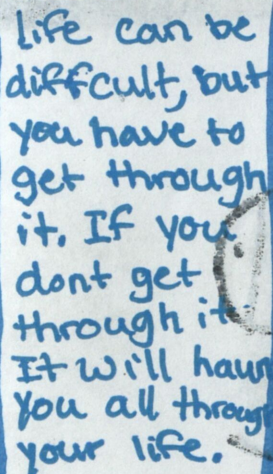 life can be
diffcult, but
you have to
get through
it. If you
dont get
through it
It will haun
you all throug
your life.